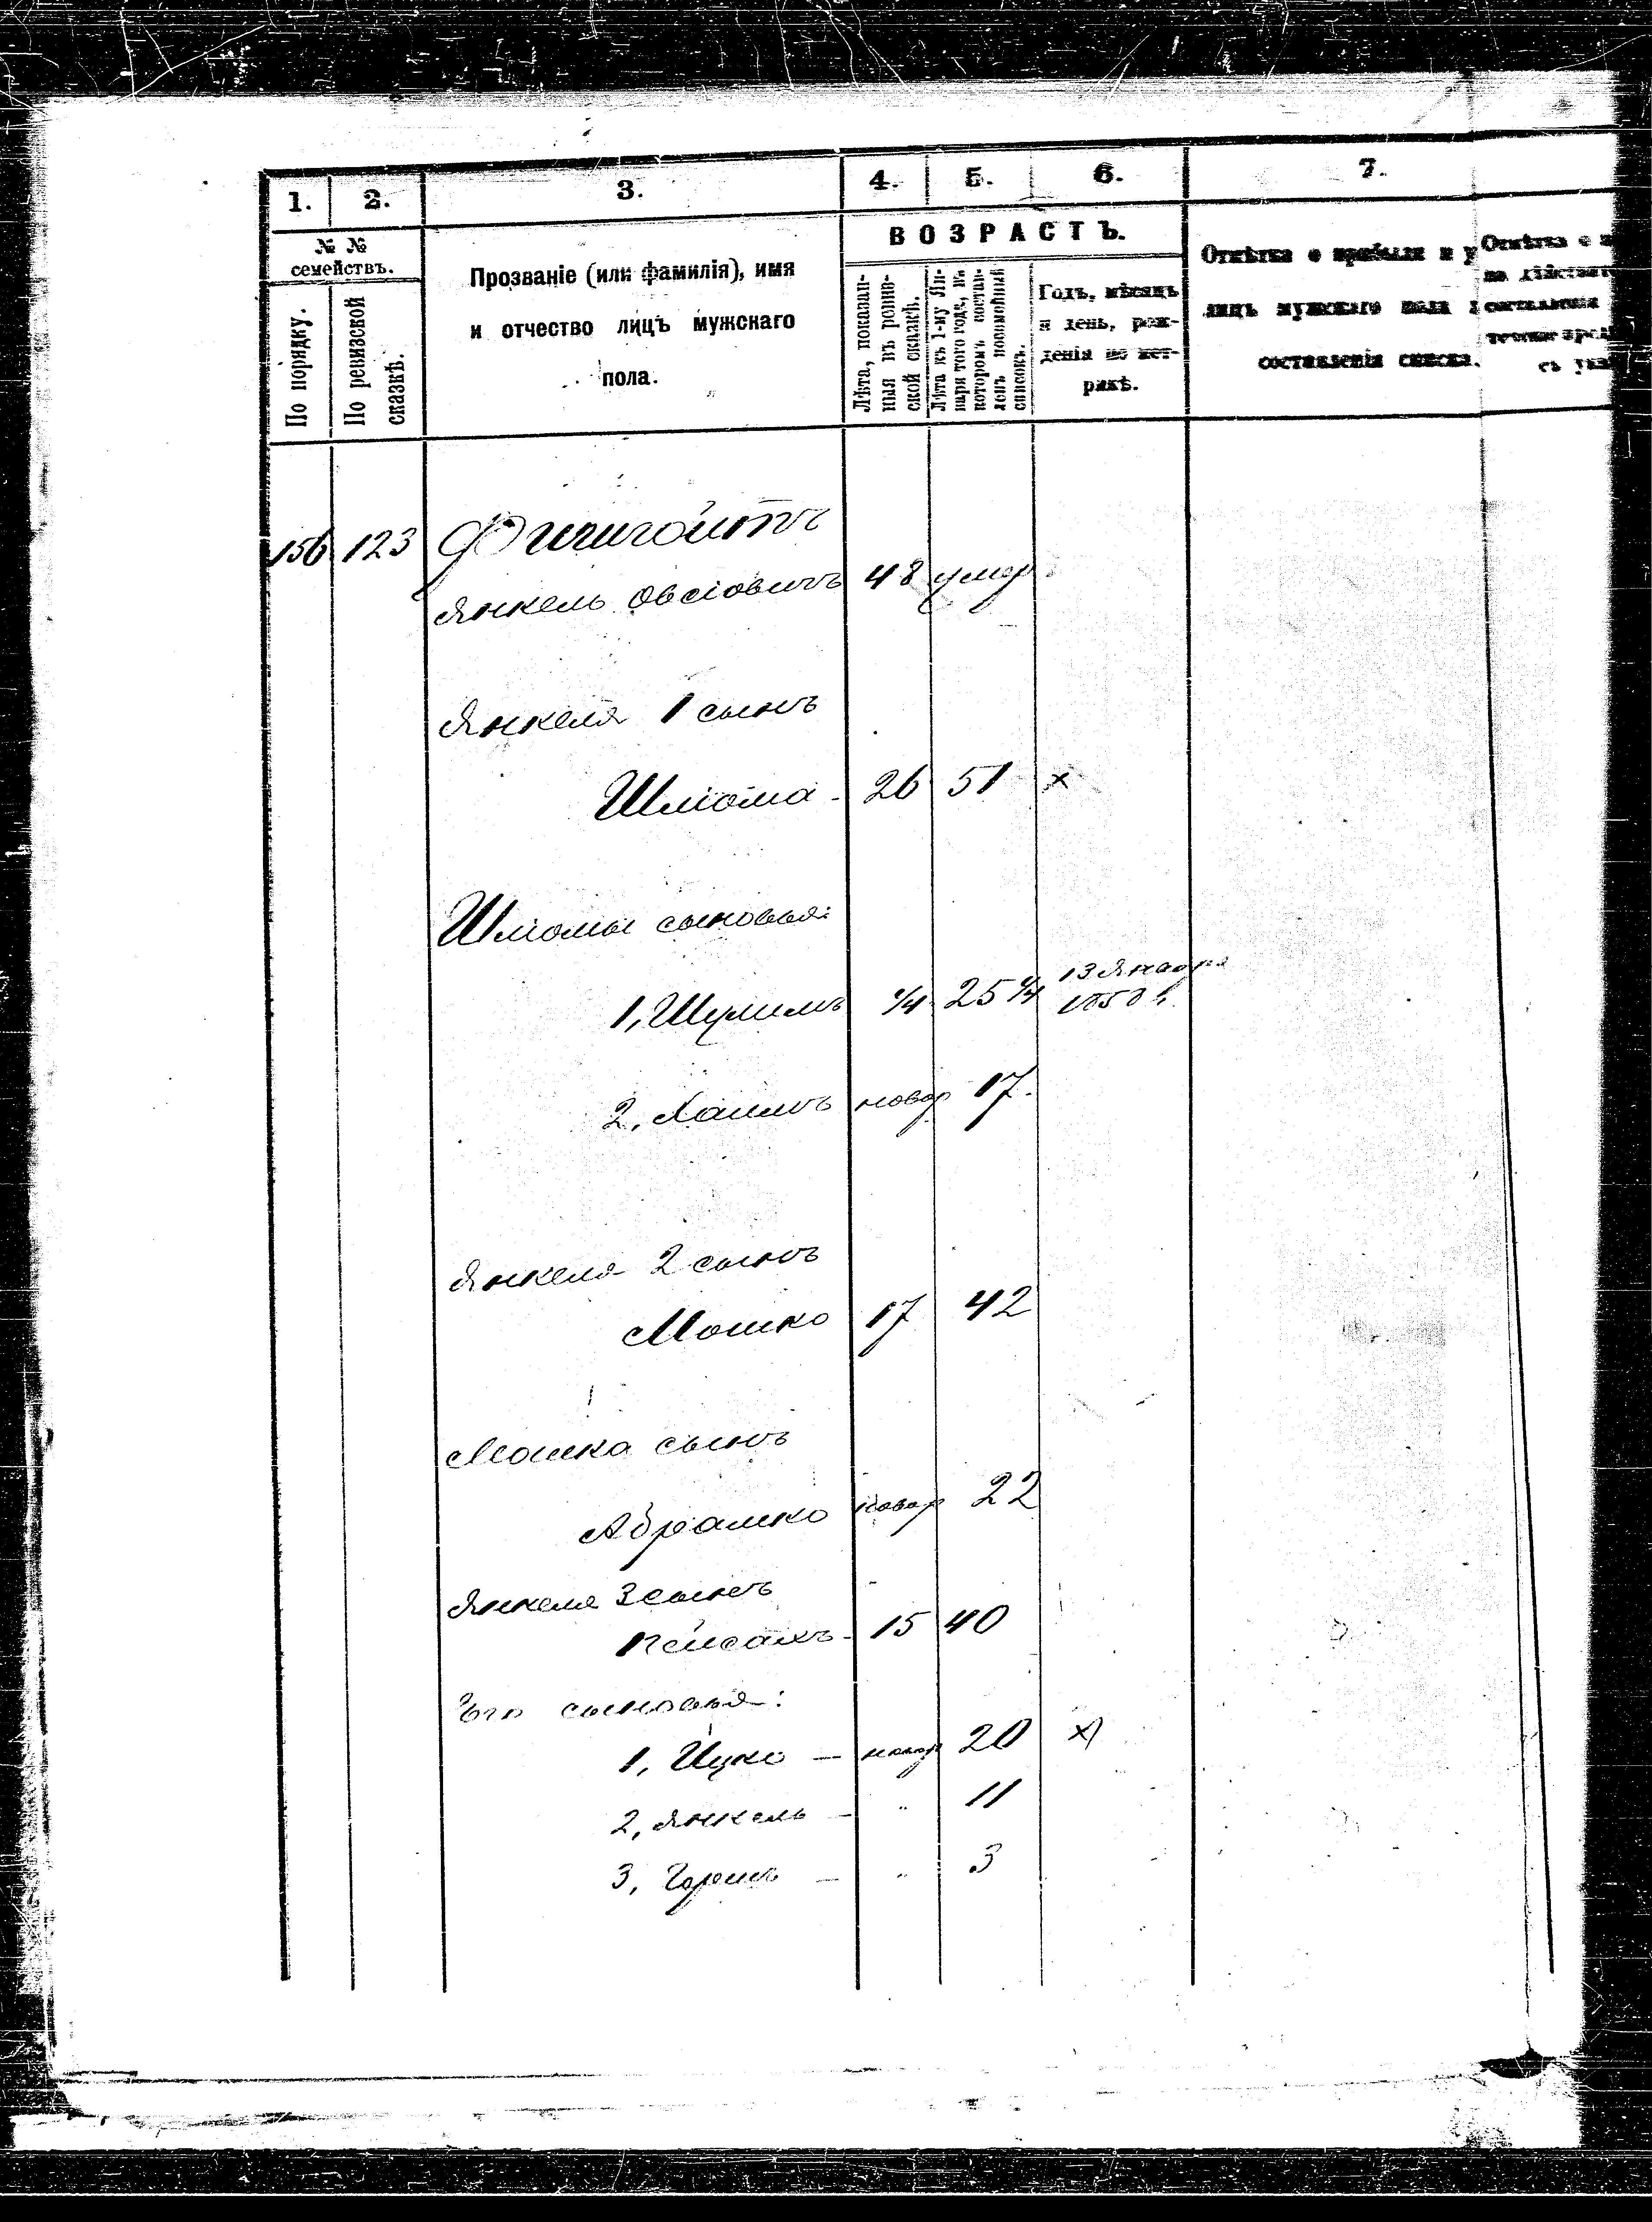 1. 2. 3. 4. 5. 6. 7.
№ №
семействъ.
По порядку.
По ревизской
сказкѣ.
Прозваніе (или фамилія), имя
и отчество лицъ мужскаго
пола.
ВОЗРАСТЪ.
Лѣта, показан-
ныя въ ревиз-
ской сказкѣ.
Лѣта къ 1-му Ян-
варя того года, въ
которомъ состав-
ленъ поименный
списокъ.
Годъ, мѣсяцъ
и день, рож-
денія по мет-
рикѣ.
Отмѣтка о прибыли и у
лицъ мужскаго пола
составленія списка.
Отмѣтка о
на дѣйствит
составленія
съ указ
156 123
Янкель Овсіовичъ 48 умер
Янкеля 1 сынъ
Шліома - 26 51 х
Шліомы сыновья:
1, Шулимъ 1/4 25 1/4 13 Января
1850 г.
2, Хаимъ новор 17.
Янкеля 2 сынъ
Мошко 17 42
Мошка сынъ
Абрамко новор 22
Янкеля 3 сынъ
Пейсахъ - 15 40
Его сыновья:
1, Ицко — новор 20 х
2, Янкель — " 11
3, Гершъ — " 3